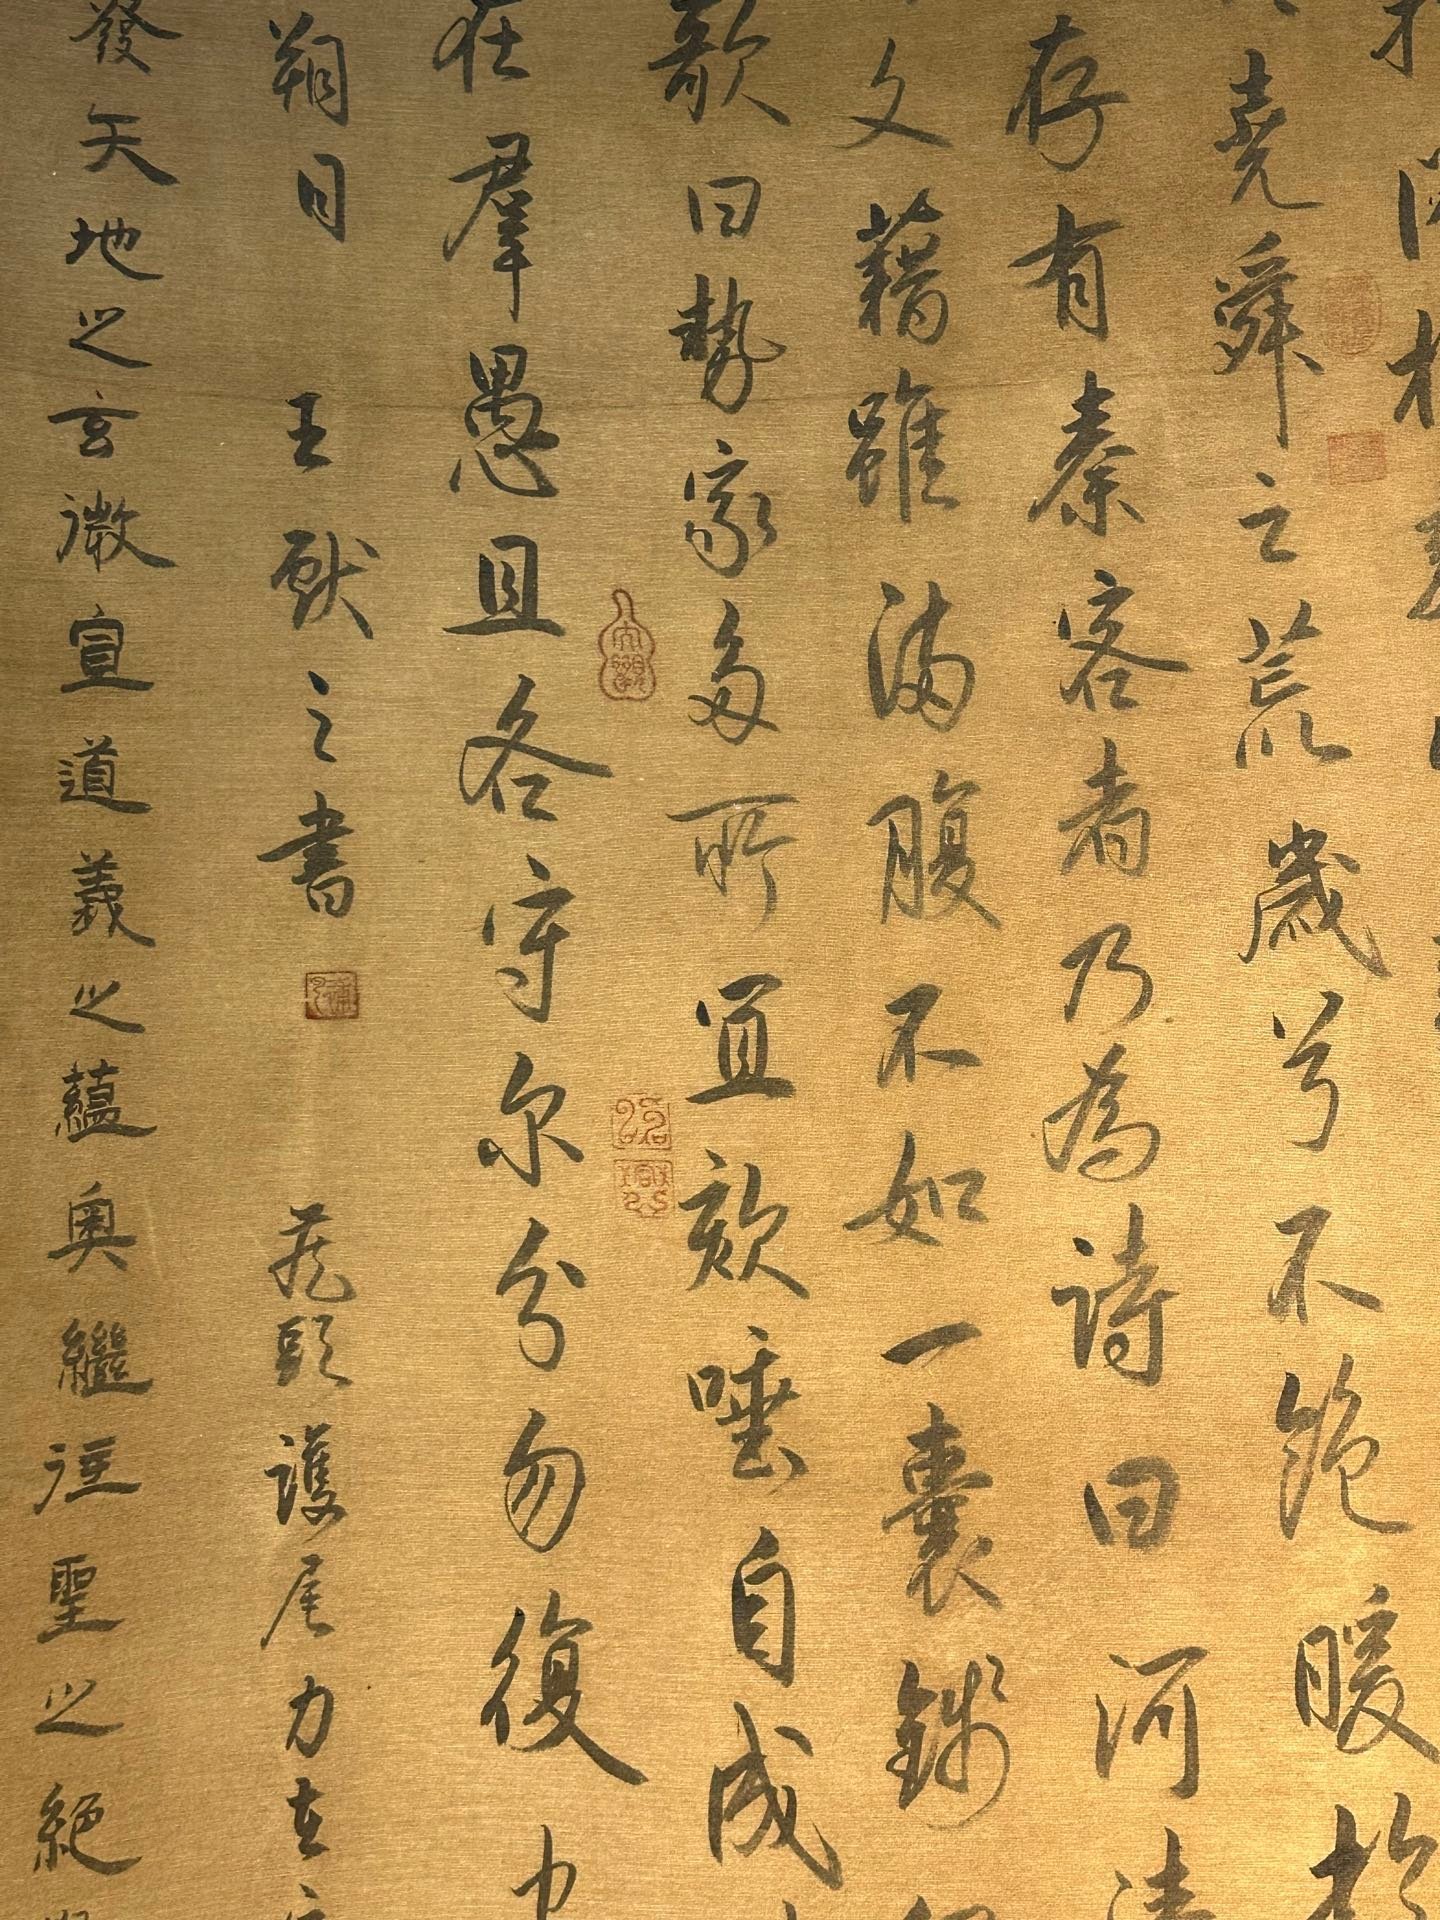 堯舜之荒歲兮不飽暖於
存有秦客者乃為詩曰河清
文藉雖滿腹不如一囊錢
歌曰勢家多所宜欬唾自成
在羣愚且各守尔分勿復
朔日 王獻之書 藏頭護尾力在
發天地之玄微宣道義之蘊奧繼往聖之絕